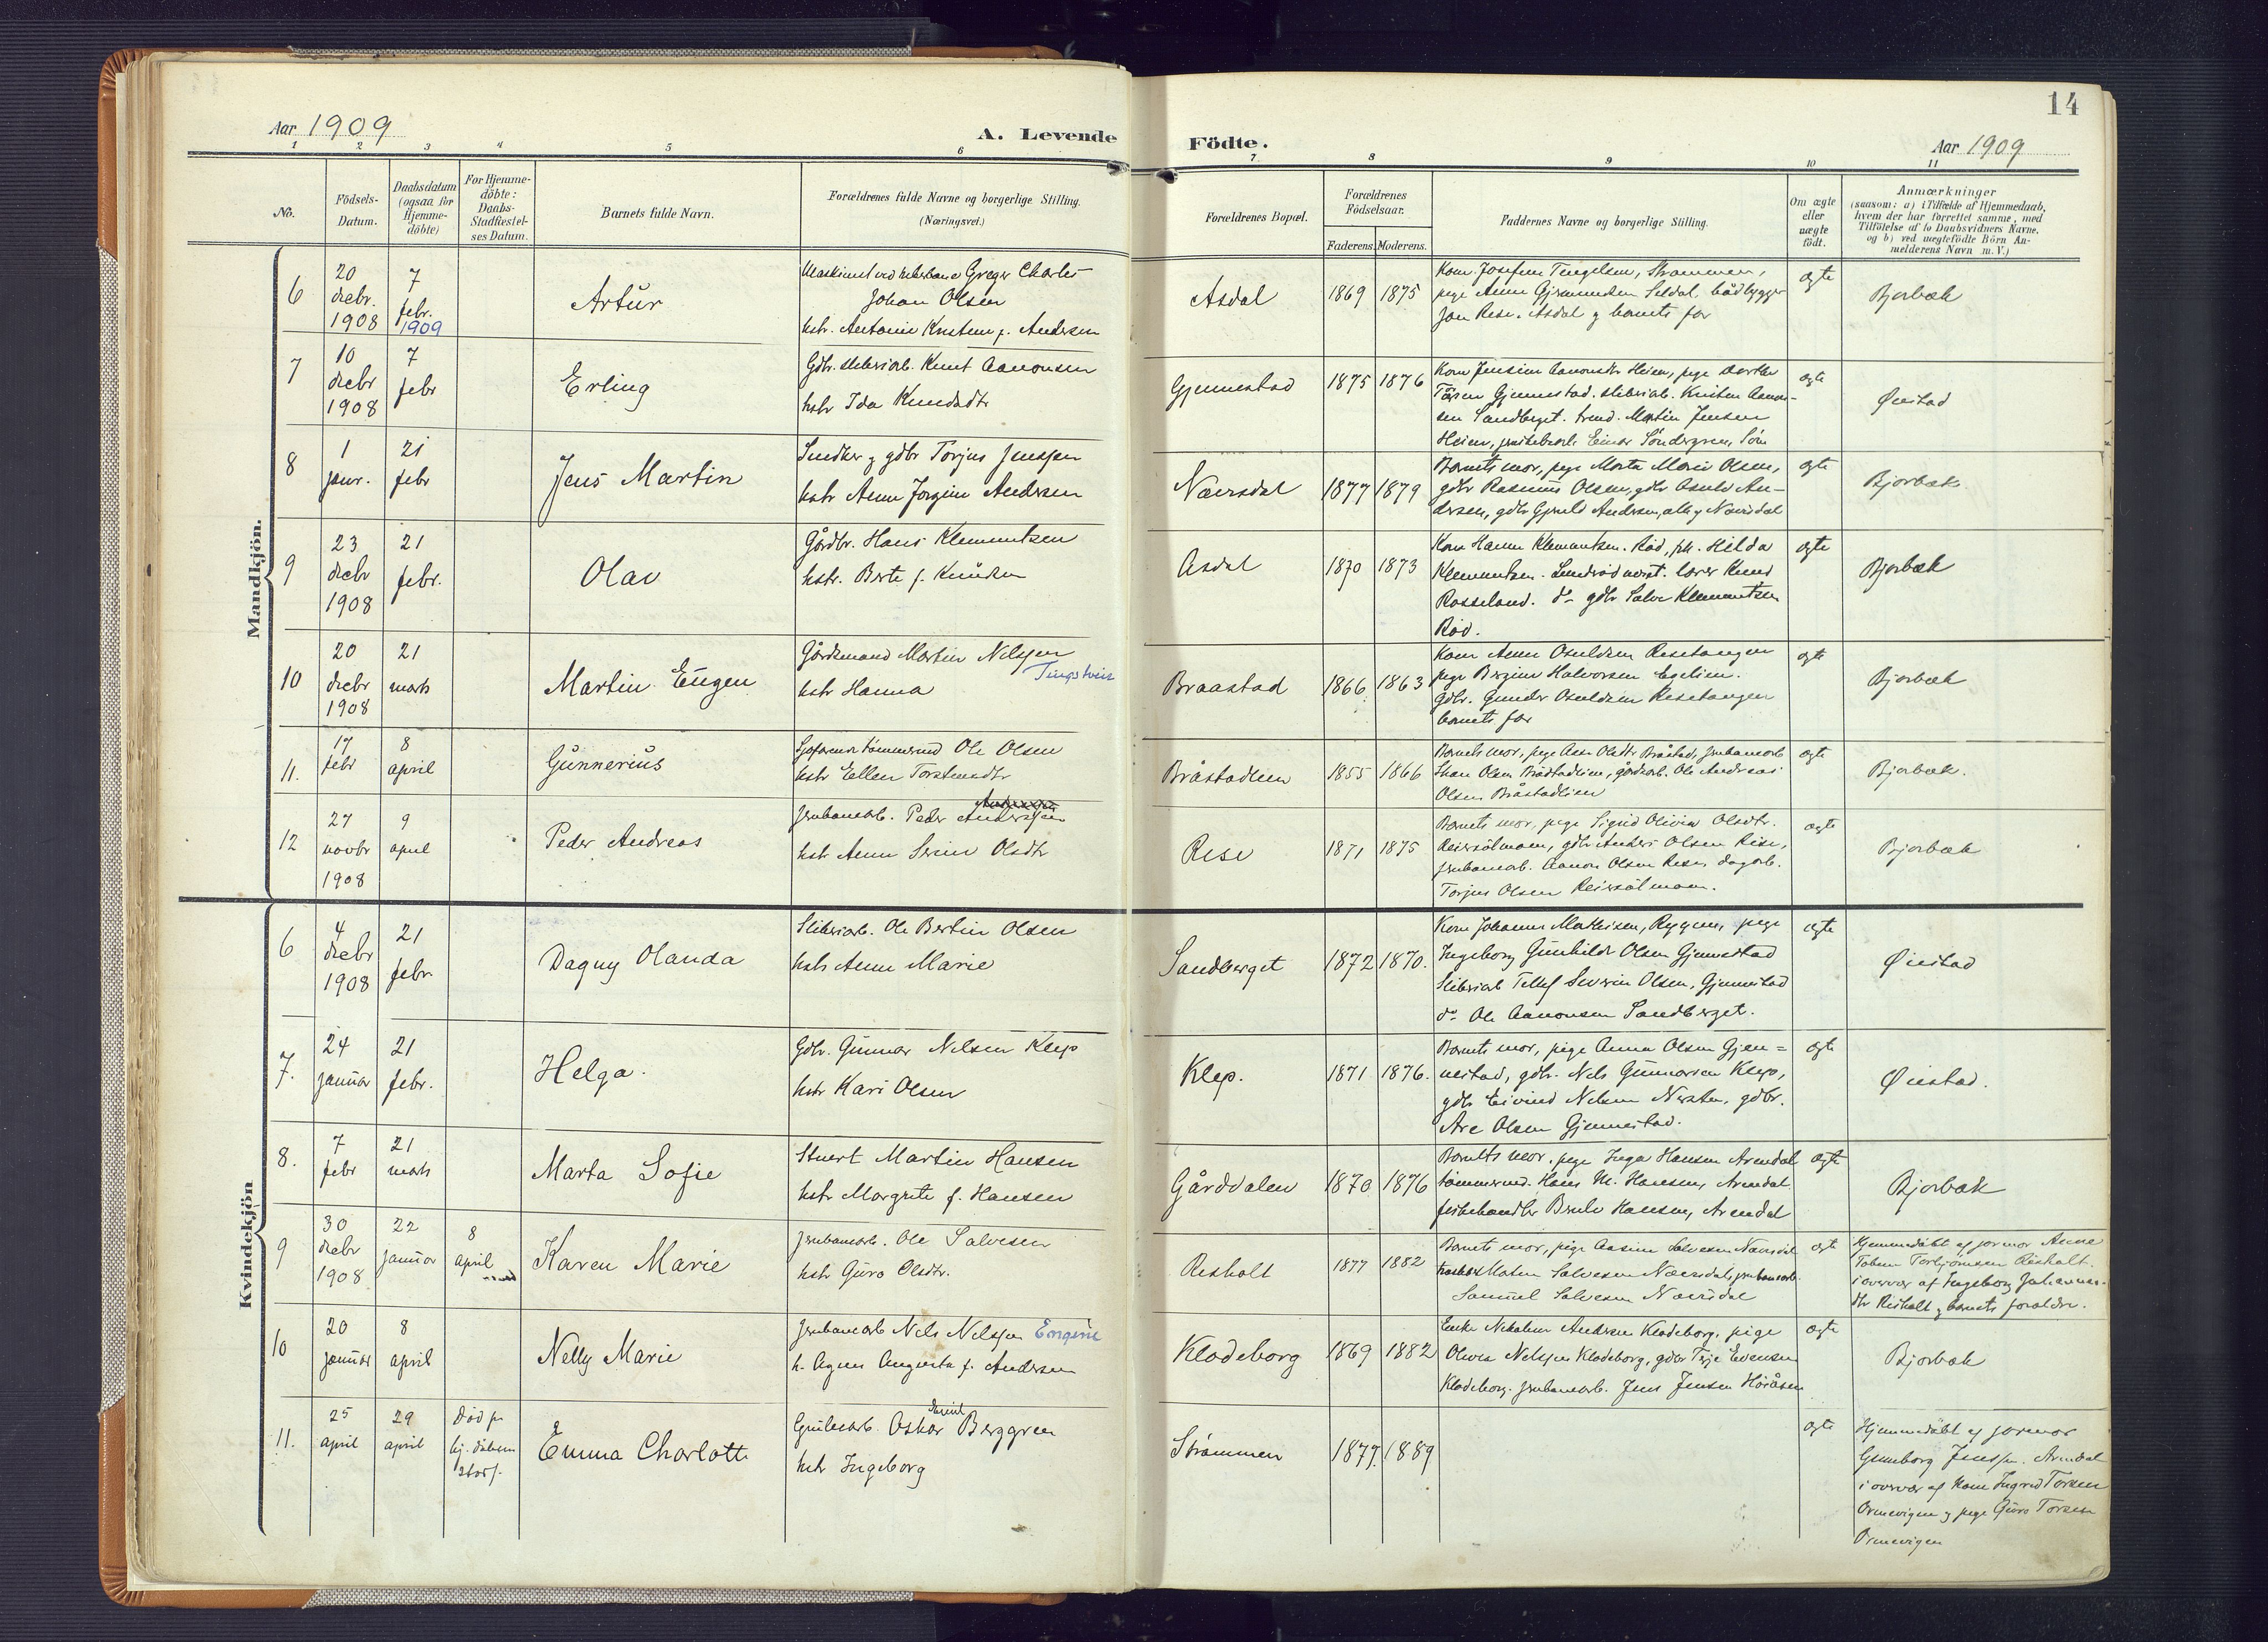 14
Aar 1909
A. Levende
Födte.
Aar 1909
1 2 3 4 5 6 7 8 9 10 11
No.
Födsels-
Datum.
Daabsdatum
(ogsaa for
Hjemme-
döbte)
For Hjemme-
döbte:
Daabs-
Stadfæstel-
ses Datum.
Barnets fulde Navn.
Forældrenes fulde Navne og borgerlige Stilling.
(Næringsvei.)
Forældrenes Bopæl.
Forældrenes
Födselsaar.
Faderens.
Moderens.
Faddernes Navne og borgerlige Stilling.
Om ægte
eller
uægte
födt.
Anmærkninger
(saasom: a) i Tilfælde af Hjemmedaab,
hvem der har forrettet samme, med
Tilföielse af to Daabsvidners Navne,
og b) ved uægtefödte Börn An-
melderens Navn m. V.)
Mandkjön.
6
20
decbr.
1908
7
febr.
1909
Artur
Greger Charles
Johan Olsen
hstr. Antonie Kristine f. Andersen
Asdal
1869
1875
Jon Rese, Asdal og barnets far
ægte
Bjorbæk
7
10
decbr
1908
7
febr
Erling
Gdbr. sliberiarb. Knut Aanonsen
hstr Ida Knudsdtr
Gjennestad
1875
1876
Kone Jensine Aanonsdtr Heien, pige
Gjennestad. sliberiarb. Kristen Aanon-
sen Sandberget. Martin Jensen
Heien,
ægte
Øiestad
8
1
janr.
21
febr
Jens Martin
Snedker og gdbr Torjus Jenssen
hstr Anne Jorgine Andersen
Næersdal
1877
1879
Barnets mor, pige Marta Marie Olsen,
gdbr Rasmus Olsen, gdbr Osuld An-
dersen, gdbr Gjeruld Andersen, alle
ægte
Bjorbæk
9
23
decbr
1908
21
febr.
Olav
Gårdbr. Hans Klemmetsen
hstr. Berte f. Knudsen
Asdal
1870
1873
Kone Hanne Klemmetsen. Rød, frk. Hilda
Klemmetsen. lærer Knud
Rosseland. do gdbr Salve Klemmetsen
Rød.
ægte
Bjorbæk
10
20
decbr
1908
21
marts
Martin Eugen
Gårdmand Martin Nilssen
Tingstveit
hstr Hanna
Braastad
1866
1863
Kone Anne Osuldsen Resetangen
pige Bergine Halvorsen Egelien.
Gdbr. Gunder Osuldsen Resetangen
barnets far
ægte
Bjorbæk
11.
17
febr
8
april
Gunnerius
Ole Olsen
hstr Ellen Torstensdtr
Bråstadlien
1855
1866
Barnets mor, pige Aase Olsdtr Bråstad, jernbanearb
Olsen Bråstadlien, gårdarb. Ole Andreas
Olsen Bråstadlien
ægte
Bjorbæk.
12
27
novbr
1908
9
april
Peder Andreas
Jernbanearb. Peder Anderssen
hstr Anne Serine Olsdtr
Rese
1871
1875
Barnets mor, pige Sigrid Olivia Olsdtr.
Reiersølmoen, gdbr Anders Olsen Rise,
jernbanearb. Aanon Olsen Rese, dagarb.
Torjus Olsen Reiersølmoen.
ægte
Bjorbæk
Kvindekjön
6
4
decbr
1908
21
febr.
Dagny Olanda
Sliberiarb. Ole Bertin Olsen
hstr Anne Marie
Sandberget
1872
1870.
Kone Johanne Mathisen, Ryggen, pige
Ingeborg Gunhilde Olsen Gjennestad
Sliberiarb Tellef Severin Olsen, Gjennestad
do Ole Aanonsen Sandberget.
ægte
Øiestad
7.
24
januar
21
febr.
Helga.
Gdbr. Gunnar Nilsen Klep
hstr Kari Olsen
Klep.
1871
1876.
Barnets mor, pige Anna Olsen Gjen=
nestad, gdbr. Nils Gunnarsen Klep,
gdbr Eivind Nilsen Nersten, gdbr.
Are Olsen Gjennestad.
ægte
Øiestad.
8.
7
febr
21
marts
Marta Sofie
Stuert Martin Hansen
hstr Margrete f. Hansen
Gårddalen
1870
1876
Barnets mor, pige Inga Hansen Arendal
tømmermd. Hans M. Hansen, Arendal
fiskehandler Hansen, Arendal
ægte
Bjorbæk
9
30
decbr
1908
22
januar
8
april
Karen Marie
Jernbanearb. Ole Salvesen
hstr Guro Olsdtr.
Resholt
1877
1882
Barnets mor, pige Aasine Salvesen Næersdal
Salvesen Næersdal, jernbanearb.
Samuel Salvesen Næersdal
ægte
Hjemmedøbt af jormor Anne
Torbjørnsen Risholt.
i overvær af Ingeborg Johannes-
dtr Risholt og barnets forældre.
10
20
januar
8
april
Nelly Marie
Jernbanearb Nils Nilssen Engene
h. Agnes Augusta f. Andersen
Klodeborg
1869
1882
Enke Nikoline Andersen Klodeborg, pige
Olivia Nilssen Klodeborg, gdbr Terje Evensen
Klodeborg. jernbanearb. Jens Jensen Høiåsen
ægte
Bjorbæk
11.
25
april
29
april
Død før
hj. dåbens
stadf.
Emma Charlotte
Oskar David Berggren
hstr Ingeborg
Strømmen
1877.
1889
ægte
Hjemmedøbt af jormor
Gunborg Jenssen. Arendal
i overvær af Kone Ingrid Torsen
Ormevigen og pige Guro Torsen
Ormevigen